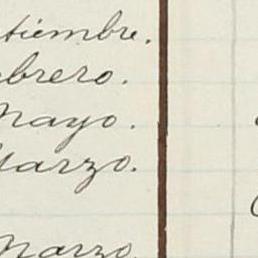 tiembre.
ebrero.
Mayo.
Marzo.
Marzo.